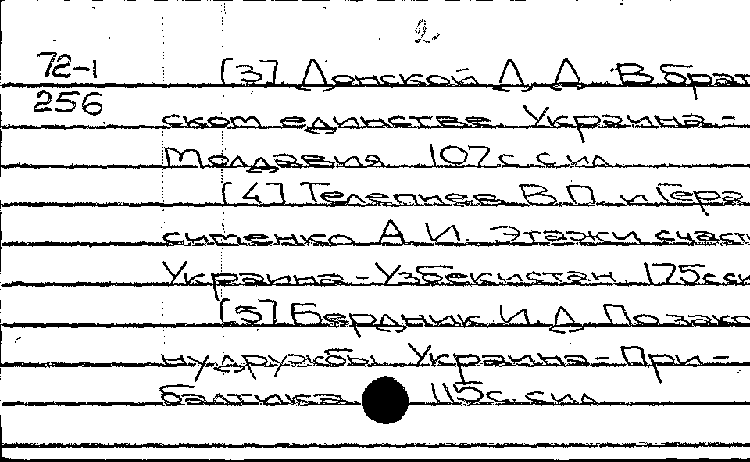 2
72-1 [3] Донской Д. Д. В брат
256
ском единстве. Украина-
Молдавия. 107с. с ил.
[4] Телепнев В.П. и Гера
сименко А.И. Этажи счаст
Украина-Узбекистан. 175с. с ил
[5] Бердник И.Д. По зако
ну дружбы. Украина-При-
балтика. 115с. с ил.